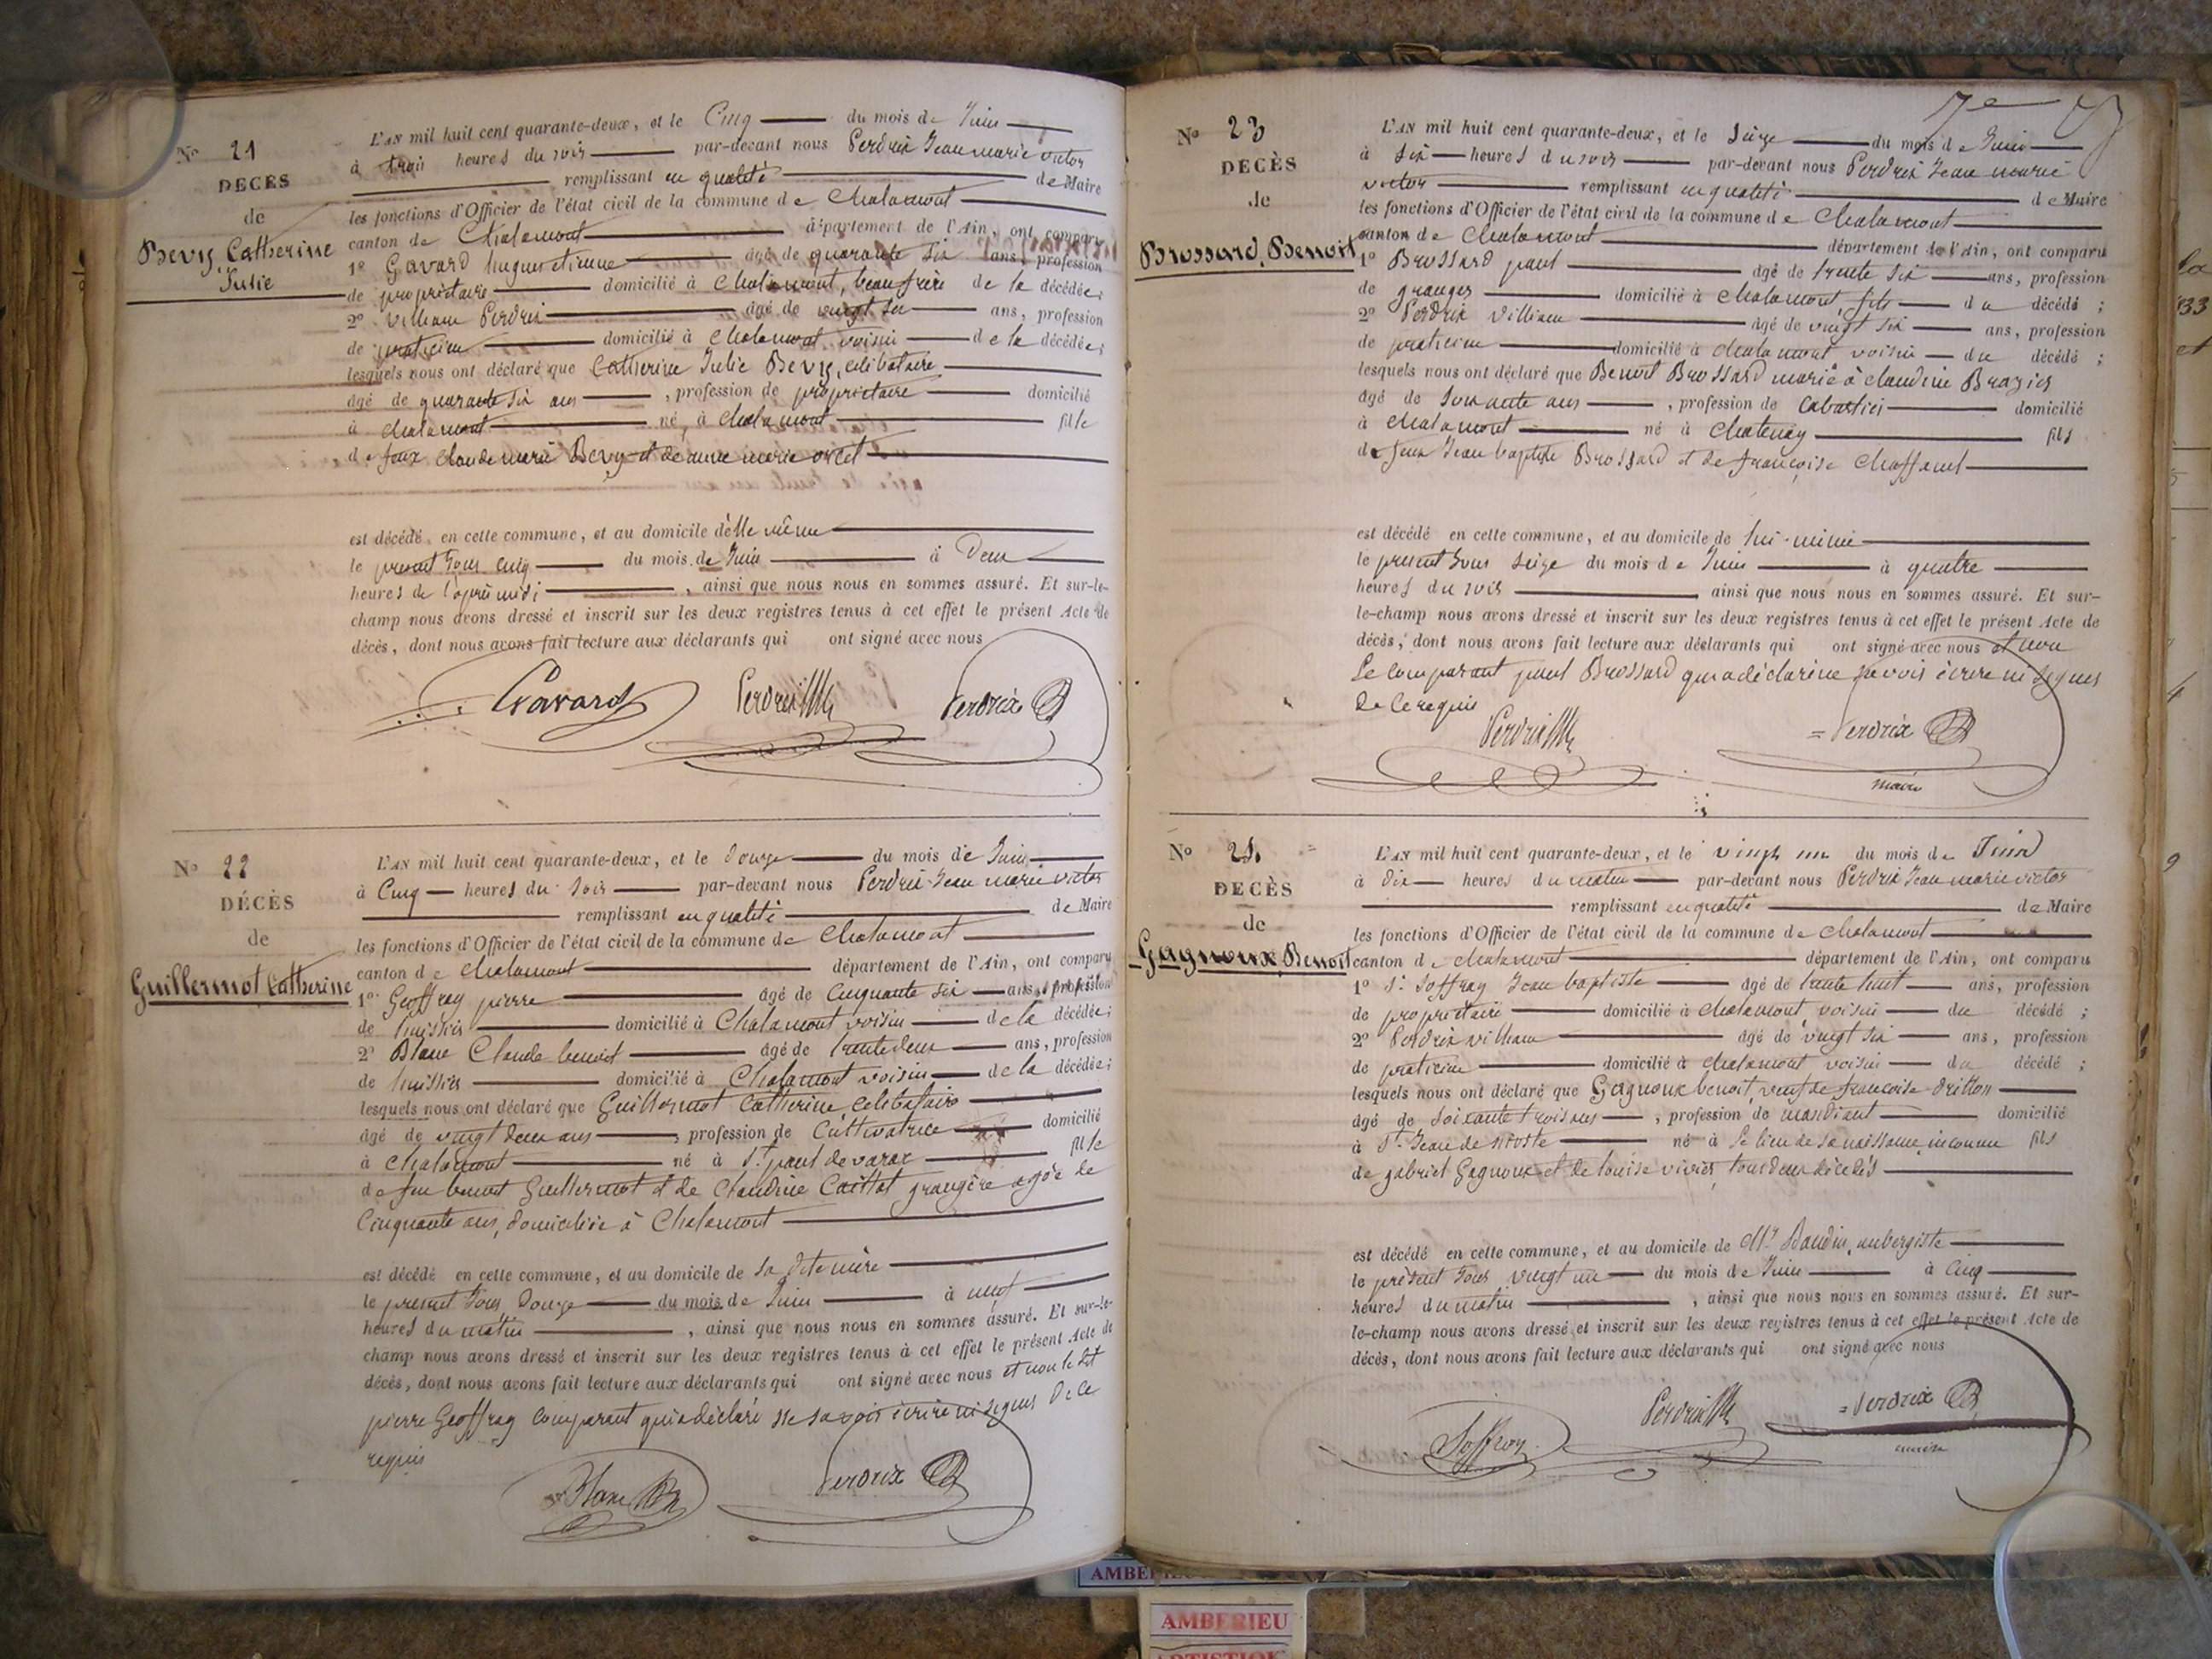 N° 21
DECÈS
de
Bevy Catherine
Julie
L'AN mil huit cent quarante-deux, et le Cinq du mois de Juin
à trois heures du soir par-devant nous Perdrix Jean marie victor
remplissant en qualité de Maire
les fonctions d'Officier de l'état civil de la commune de Chalamont
canton de Chalamont département de l'Ain, ont comparu
1° Gavard hugues etienne âgé de quarante six ans, profession
de propriétaire domicilié à Chalamont, beau frère de la décédée;
2° Villiam Perdrix âgé de vingt six ans, profession
de praticien domicilié à Chalamont voisin de la décédée;
lesquels nous ont déclaré que Catherine Julie Bevy, célibataire
âgé de quarante six ans, profession de propriétaire domicilié
à chalamont né à chalamont fille
de feux claude marie Bevy et de anne marie orcet
est décédé en cette commune, et au domicile d'elle même
le présent jour cinq du mois de Juin à Deux
heures de l'après midi, ainsi que nous nous en sommes assuré. Et sur-le-
champ nous avons dressé et inscrit sur les deux registres tenus à cet effet le présent Acte de
décès, dont nous avons fait lecture aux déclarants qui ont signé avec nous
Gavard Perdrix Perdrix
N° 22
DÉCÈS
de
Guillermot Catherine
L'AN mil huit cent quarante-deux, et le douze du mois de Juin
à Cinq heures du soir par-devant nous Perdrix Jean marie victor
remplissant en qualité de Maire
les fonctions d'Officier de l'état civil de la commune de Chalamont
canton de chalamont département de l'Ain, ont comparu
1° Geoffray pierre âgé de cinquante six ans, profession
de huissier domicilié à Chalamont voisin de la décédée;
2° Blanc Claude benoit âgé de trente deux ans, profession
de huissier domicilié à Chalamont voisin de la décédée;
lesquels nous ont déclaré que Guillermot Catherine, celibataire
âgé de vingt deux ans, profession de Cultivatrice domicilié
à Chalamont né à St. paul de varax fille
de feu benoit Guillermot et de Claudine Caillat grangère agée de
Cinquante ans, domiciliée à Chalamont
est décédé en cette commune, et au domicile de sa dite mère
le présent jour Douze du mois de Juin à neuf
heures du matin, ainsi que nous nous en sommes assuré. Et sur-le-
champ nous avons dressé et inscrit sur les deux registres tenus à cet effet le présent Acte de
décès, dont nous avons fait lecture aux déclarants qui ont signé avec nous et non le dit
pierre Geoffray comparant qui a déclaré ne savoir écrire ni signer de ce
requis
Blanc Perdrix
7e
N° 23
DECÈS
de
Brossard, Benoit
L'AN mil huit cent quarante-deux, et le seize du mois de Juin
à six heures du soir par-devant nous Perdrix Jean marie
victor remplissant en qualité de Maire
les fonctions d'Officier de l'état civil de la commune de Chalamont
canton de Chalamont département de l'Ain, ont comparu
1° Brossard paul âgé de trente six ans, profession
de granger domicilié à Chalamont fils du décédé;
2° Perdrix Villiam âgé de vingt six ans, profession
de praticien domicilié à chalamont voisin du décédé;
lesquels nous ont déclaré que Benoit Brossard marié à claudine Brazier
âgé de soixante ans, profession de cabartier domicilié
à chalamont né à Chatenay fils
de feux Jean baptiste Brossard et de françoise Chaffanel
est décédé en cette commune, et au domicile de lui-même
le présent jour seize du mois de Juin à quatre
heures du soir ainsi que nous nous en sommes assuré. Et sur-
le-champ nous avons dressé et inscrit sur les deux registres tenus à cet effet le présent Acte de
décès, dont nous avons fait lecture aux déclarants qui ont signé avec nous et non
le comparant paul Brossard qui a déclaré ne savoir écrire ni signer
de ce requis
Perdrix Perdrix
maire
N° 24
DECÈS
de
Gagnoux, Benoit
L'AN mil huit cent quarante-deux, et le vingt un du mois de Juin
à dix heures du matin par-devant nous Perdrix Jean marie victor
remplissant en qualité de Maire
les fonctions d'Officier de l'état civil de la commune de Chalamont
canton de chalamont département de l'Ain, ont comparu
1° Joffray Jean baptiste âgé de trente huit ans, profession
de propriétaire domicilié à chalamont voisin du décédé;
2° Perdrix villiam âgé de vingt six ans, profession
de praticien domicilié à chalamont voisin du décédé;
lesquels nous ont déclaré que Gagnoux benoit, veuf de françoise dritton
âgé de soixante trois ans, profession de mandiant domicilié
à St. Jean de Nioste né à le lieu de sa naissance inconnu fils
de gabriel Gagnoux et de louise vivier, tous deux décédés
est décédé en cette commune, et au domicile de Mr. Baudin, aubergiste
le présent jour vingt un du mois de Juin à cinq
heures du matin, ainsi que nous nous en sommes assuré. Et sur-
le-champ nous avons dressé et inscrit sur les deux registres tenus à cet effet le présent Acte de
décès, dont nous avons fait lecture aux déclarants qui ont signé avec nous
Joffray Perdrix Perdrix
maire
AMBERIEU